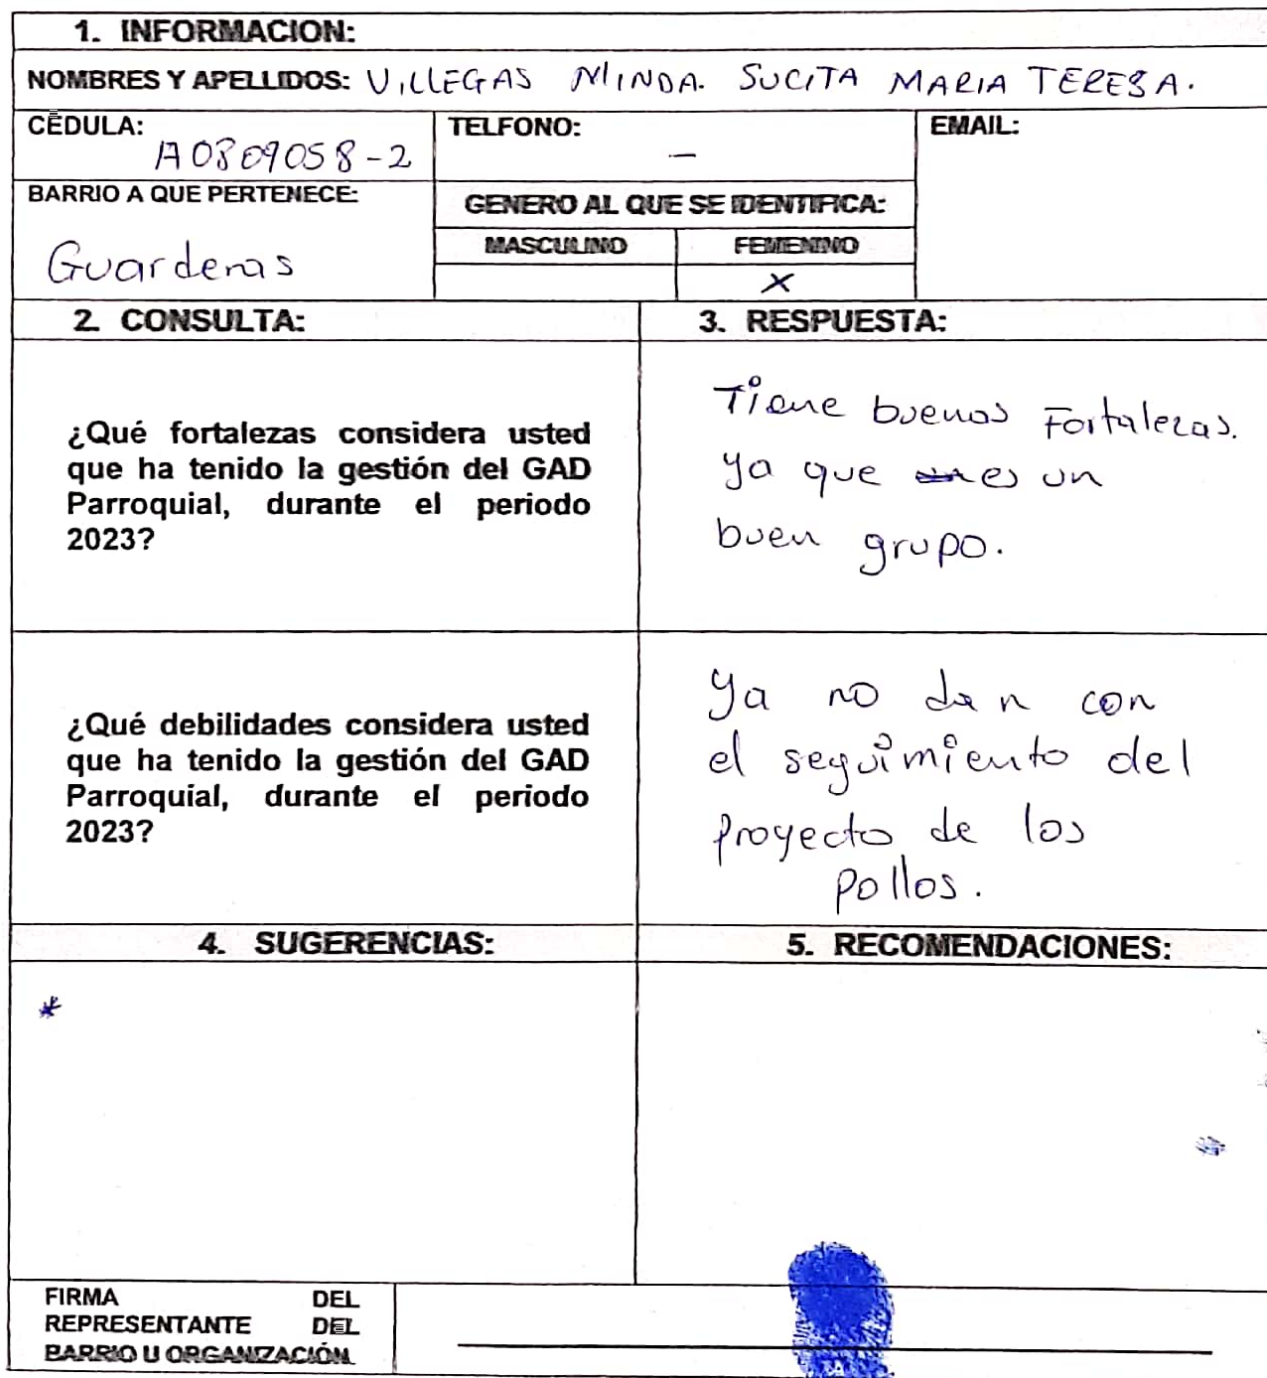 1. INFORMACION:
NOMBRES Y APELLIDOS: VILLEGAS MINDA. SUCITA MARIA TERESA.
CÉDULA: TELFONO: EMAIL:
A0809058-2 —
BARRIO A QUE PERTENECE: GENERO AL QUE SE IDENTIFICA:
MASCULINO FEMENINO
Guarderas X
2. CONSULTA: 3. RESPUESTA:
¿Qué fortalezas considera usted
que ha tenido la gestión del GAD
Parroquial, durante el periodo
2023?
Tiene buenas Fortalezas.
ya que es un
buen grupo.
¿Qué debilidades considera usted
que ha tenido la gestión del GAD
Parroquial, durante el periodo
2023?
ya no dan con
el seguimiento del
proyecto de los
pollos.
4. SUGERENCIAS: 5. RECOMENDACIONES:
*
FIRMA DEL
REPRESENTANTE DEL
BARRIO U ORGANIZACIÓN